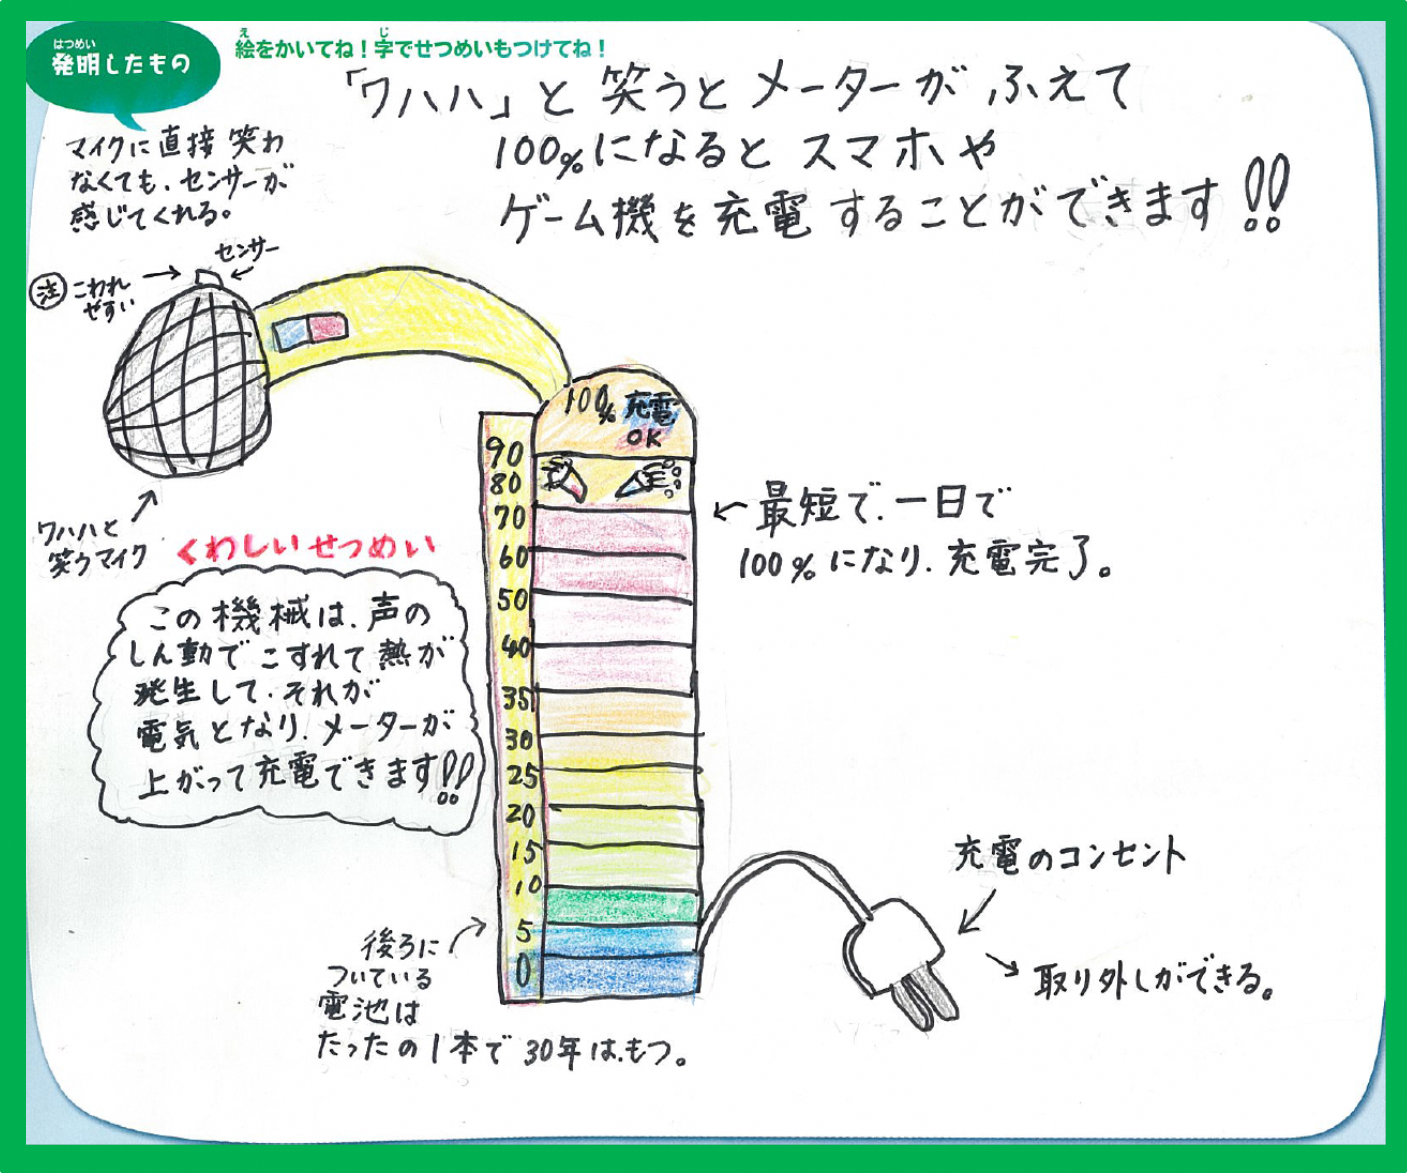 はつめい
発明したもの
え じ
絵をかいてね！字でせつめいもつけてね！
「ワハハ」と笑うとメーターがふえて
100%になるとスマホや
ゲーム機を充電することができます!!
マイクに直接笑わ
なくても、センサーが
感じてくれる。
センサー
注 こわれ
やすい
ワハハと
笑うマイク
くわしいせつめい
この機械は、声の
しん動でこすれて熱が
発生して、それが
電気となり、メーターが
上がって充電できます!!
100% 充電
OK
90
80
70
60
50
40
35
30
25
20
15
10
5
0
最短で、一日で
100%になり、充電完了。
後ろに
ついている
電池は
たったの1本で30年は、もつ。
充電のコンセント
取り外しができる。